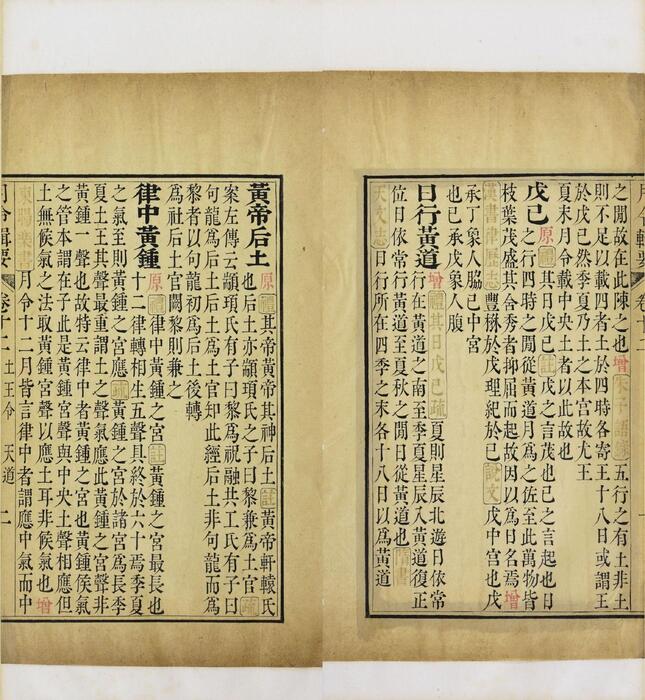 月令輯要 卷十二
之閒故在此陳之也增朱子語錄五行之有土非土
則不足以載四者土於四時各寄王十八日或謂王
於戊己然季夏乃土之本宮故尤王
夏末月令載中央土者以此故也
戊己原禮其日戊己註戊之言茂也己之言起也日
之行四時之閒從黃道月為之佐至此萬物皆
枝葉茂盛其含秀者抑屈而起故因以為日名焉增
漢書律歷志豐楙於戊理紀於己說文戊中宮也戊
承丁象人脇己中宮
也己承戊象人腹
日行黃道增禮其日戊己疏夏則星辰北遊日依常
行在黃道之南至季夏星辰入黃道復正
位日依常行黃道至夏秋之閒日從黃道也隋書
天文志日行所在四季之末各十八日以為黃道
黃帝后土原禮其帝黃帝其神后土註黃帝軒轅氏
也后土亦顓頊氏之子曰黎兼為土官疏
案左傳云顓頊氏有子曰黎為祝融共工氏有子曰
句龍為后土后土為土官知此經后土非句龍而為
黎者以句龍初為后土後轉
為社后土官闕黎則兼之
律中黃鍾原禮律中黃鍾之宮註黃鍾之宮最長也
十二律轉相生五聲具終於六十焉季夏
之氣至則黃鍾之宮應疏黃鍾之宮於諸宮為長季
夏土王其聲最重謂土之聲氣應此黃鍾之宮聲非
黃鍾一聲也故特云律中黃鍾之宮也黃鍾候氣
之管本謂在子此是黃鍾宮聲與中央土聲相應但
土無候氣之法取黃鍾宮聲以應土耳非候氣也增
東陽葉書月令十二月皆言律中者謂應中氣而中
月令輯要 卷十二 土王令 天道 二